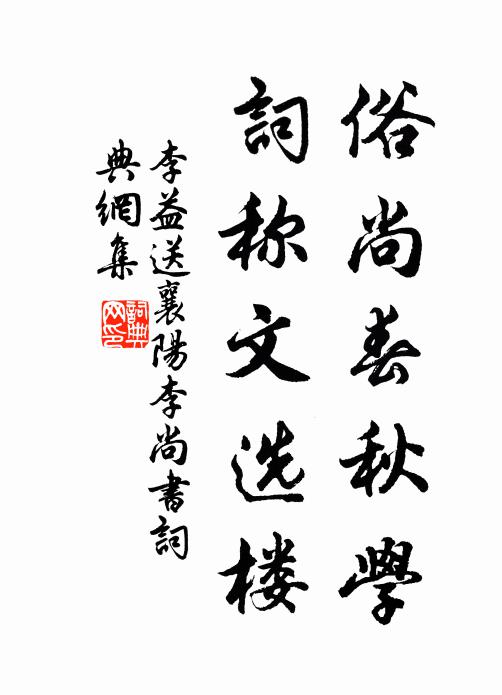 俗尚春秋學
詞称文选楼
李益送襄陽李尚書詞
典網集
詞典网印